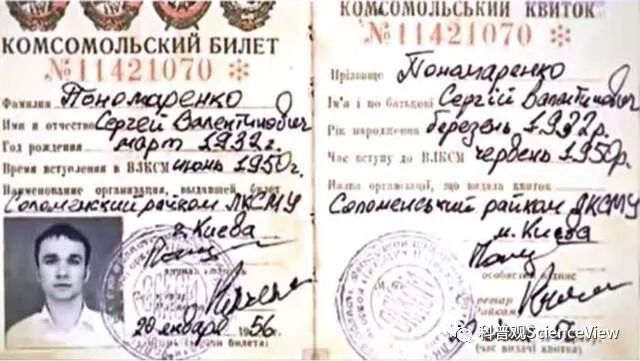 КОМСОМОЛЬСКИЙ БИЛЕТ
№11421070
Фамилия Пономаренко
Имя и отчество Сергей Валентинович
Год рождения март 1932г.
Время вступления в ВЛКСМ июнь 1950г.
Наименование организации, выдавшей билет
Соломенский райком ЛКСМУ
г. Киева
20 января 1956г.
(время выдачи билета)
КОМСОМОЛЬСЬКИЙ КВИТОК
№11421070
Прізвище Пономаренко
Ім'я і по батькові Сергій Валентинович
Рік народження березень 1932р.
Час вступу до ВЛКСМ червень 1950р.
Назва організації, що видала квиток
Соломенський райком ЛКСМУ
м. Києва
особистий підпис
Секретар
райкому
(час видачі квитка)
科普观ScienceView